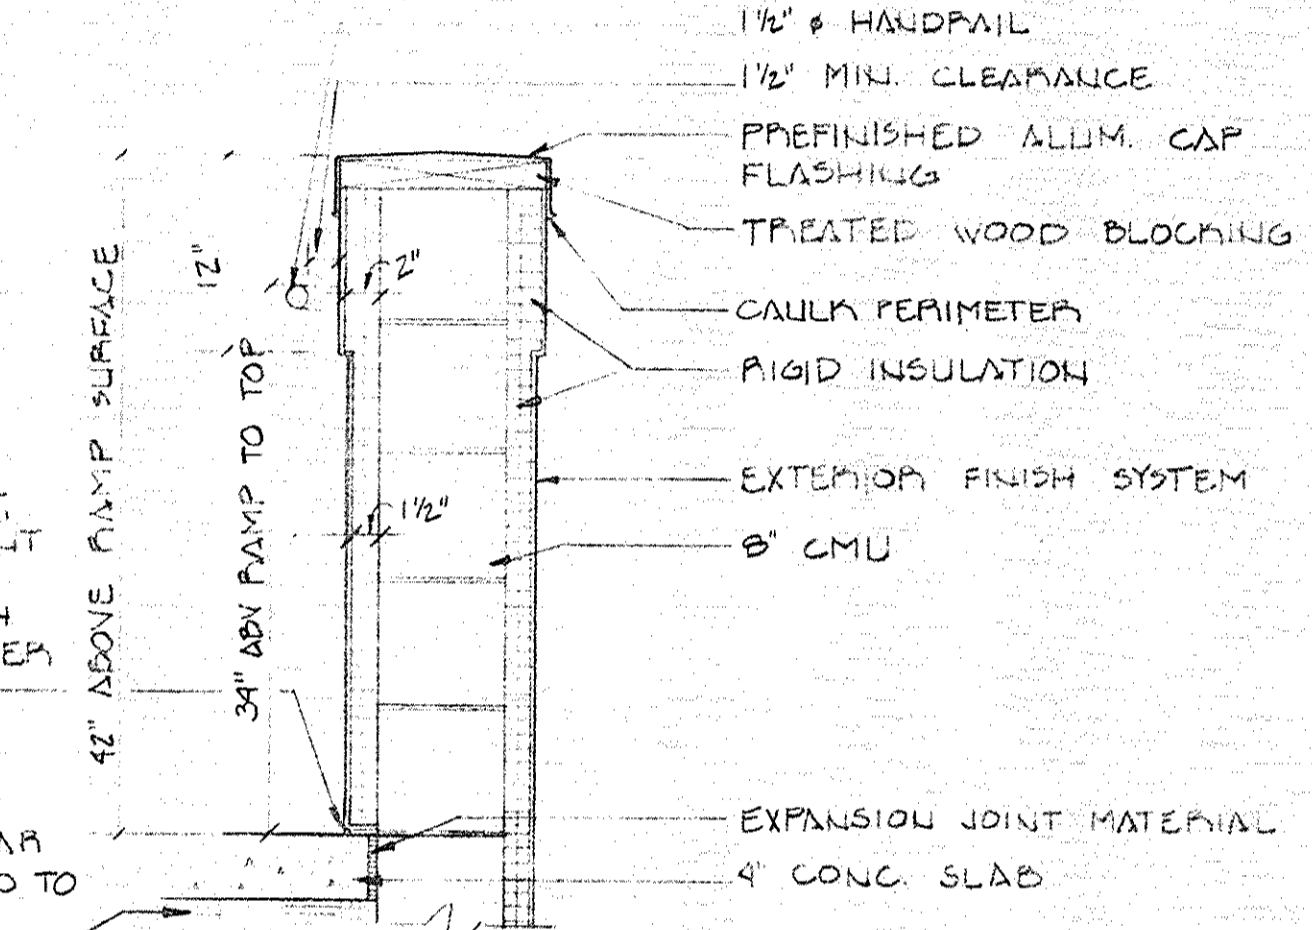 1½" ø HANDRAIL
1½" MIN. CLEARANCE
PREFINISHED ALUM. CAP
FLASHING
TREATED WOOD BLOCKING
CAULK PERIMETER
RIGID INSULATION
EXTERIOR FINISH SYSTEM
8" CMU
EXPANSION JOINT MATERIAL
4" CONC. SLAB
12"
2"
1½"
42" ABOVE RAMP SURFACE
34" ABV RAMP TO TOP
ER
AR
TO